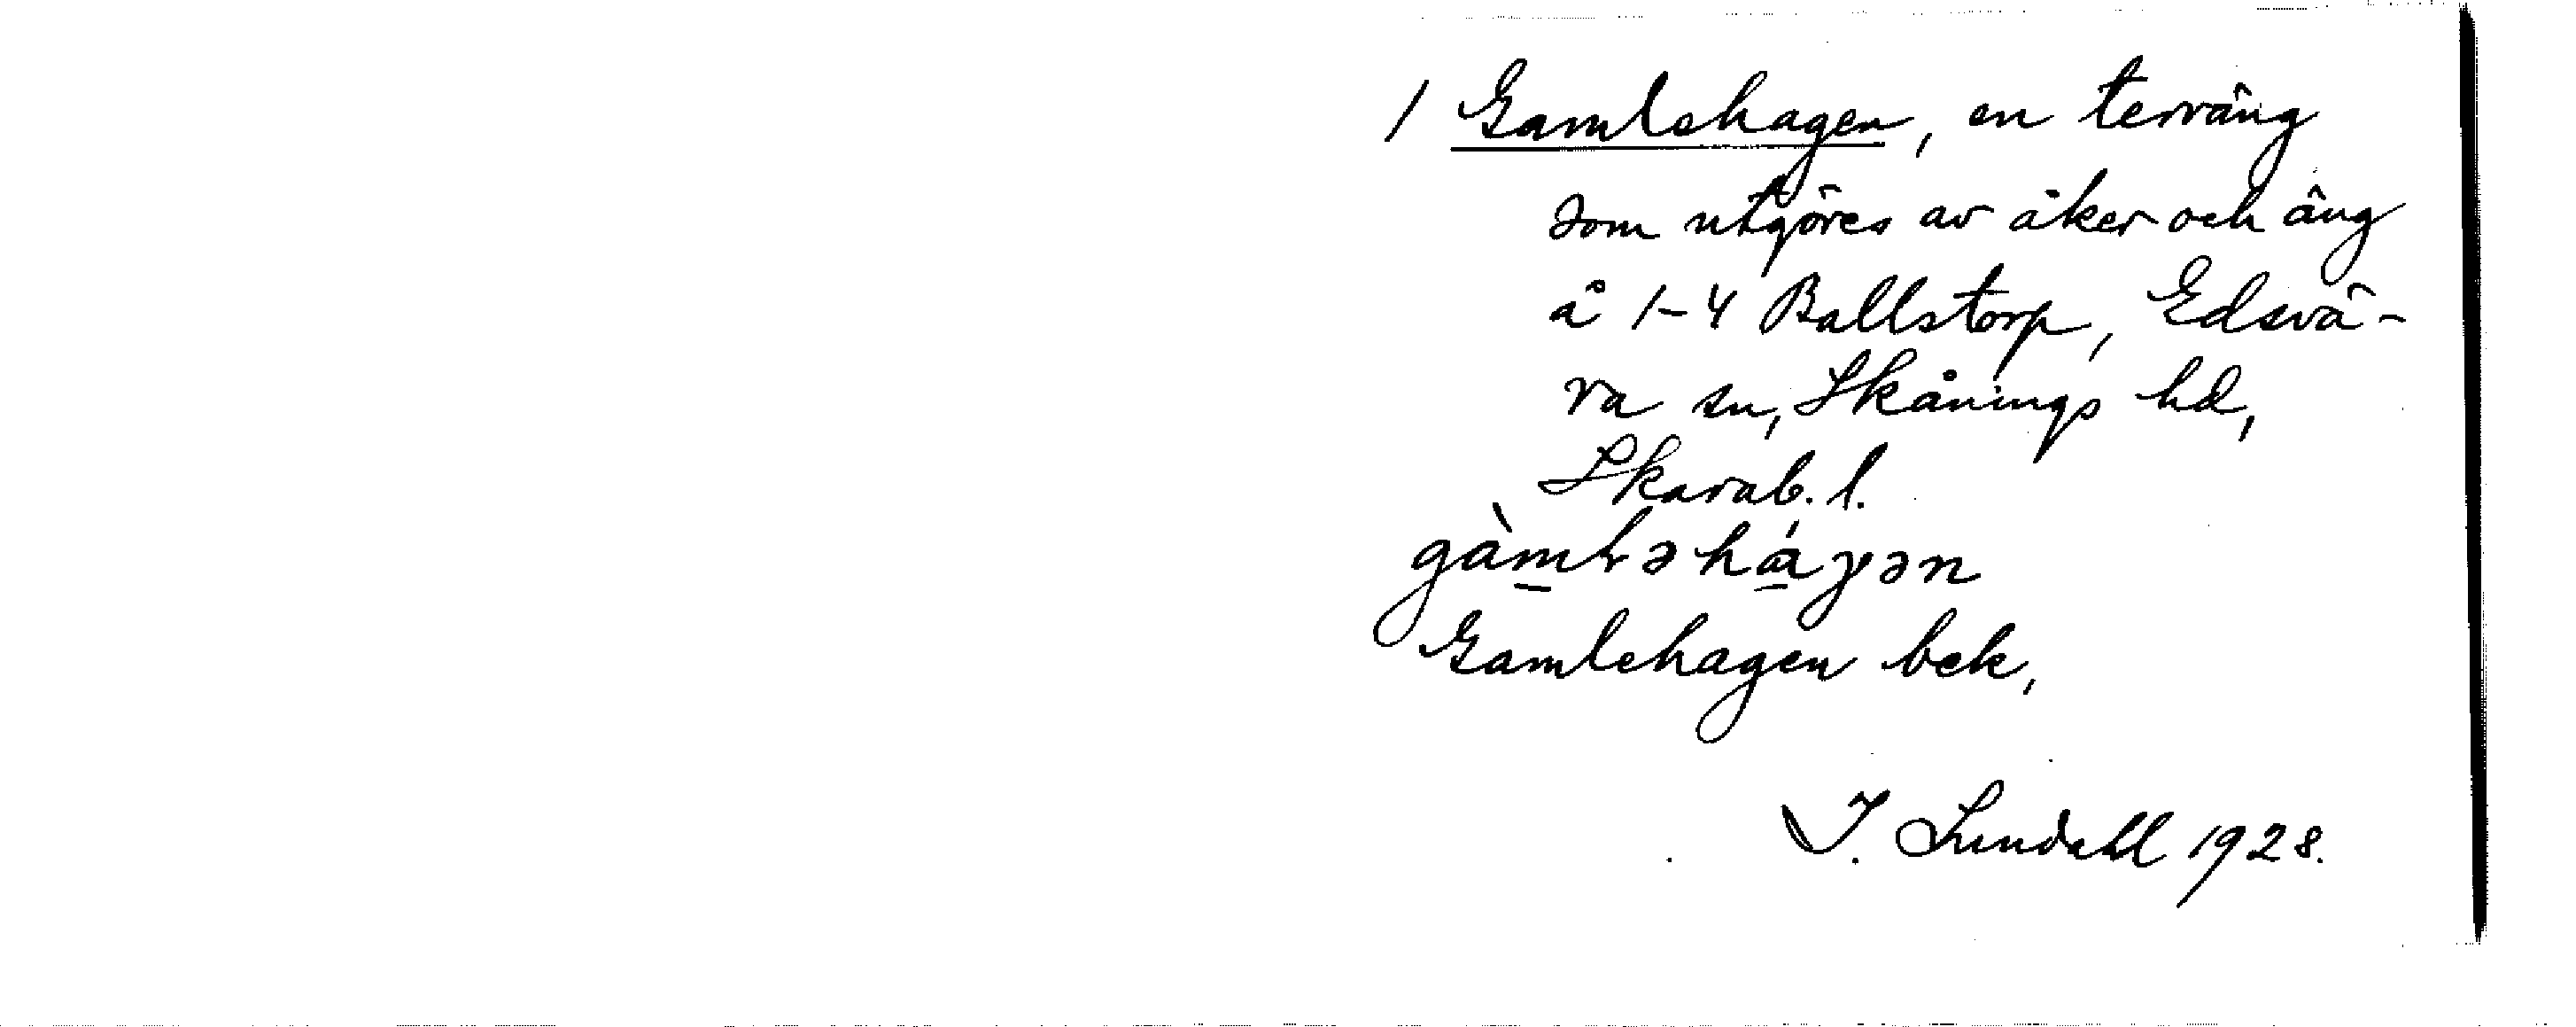 1 Gamlehagen, en terräng
som utgöres av åker och äng
å 1-4 Ballstorp, Edsvä-
ra sn, Skånings hd,
Skarab. l.
gàmləháγən
Gamlehagen bek,
I. Lundahl 1928.